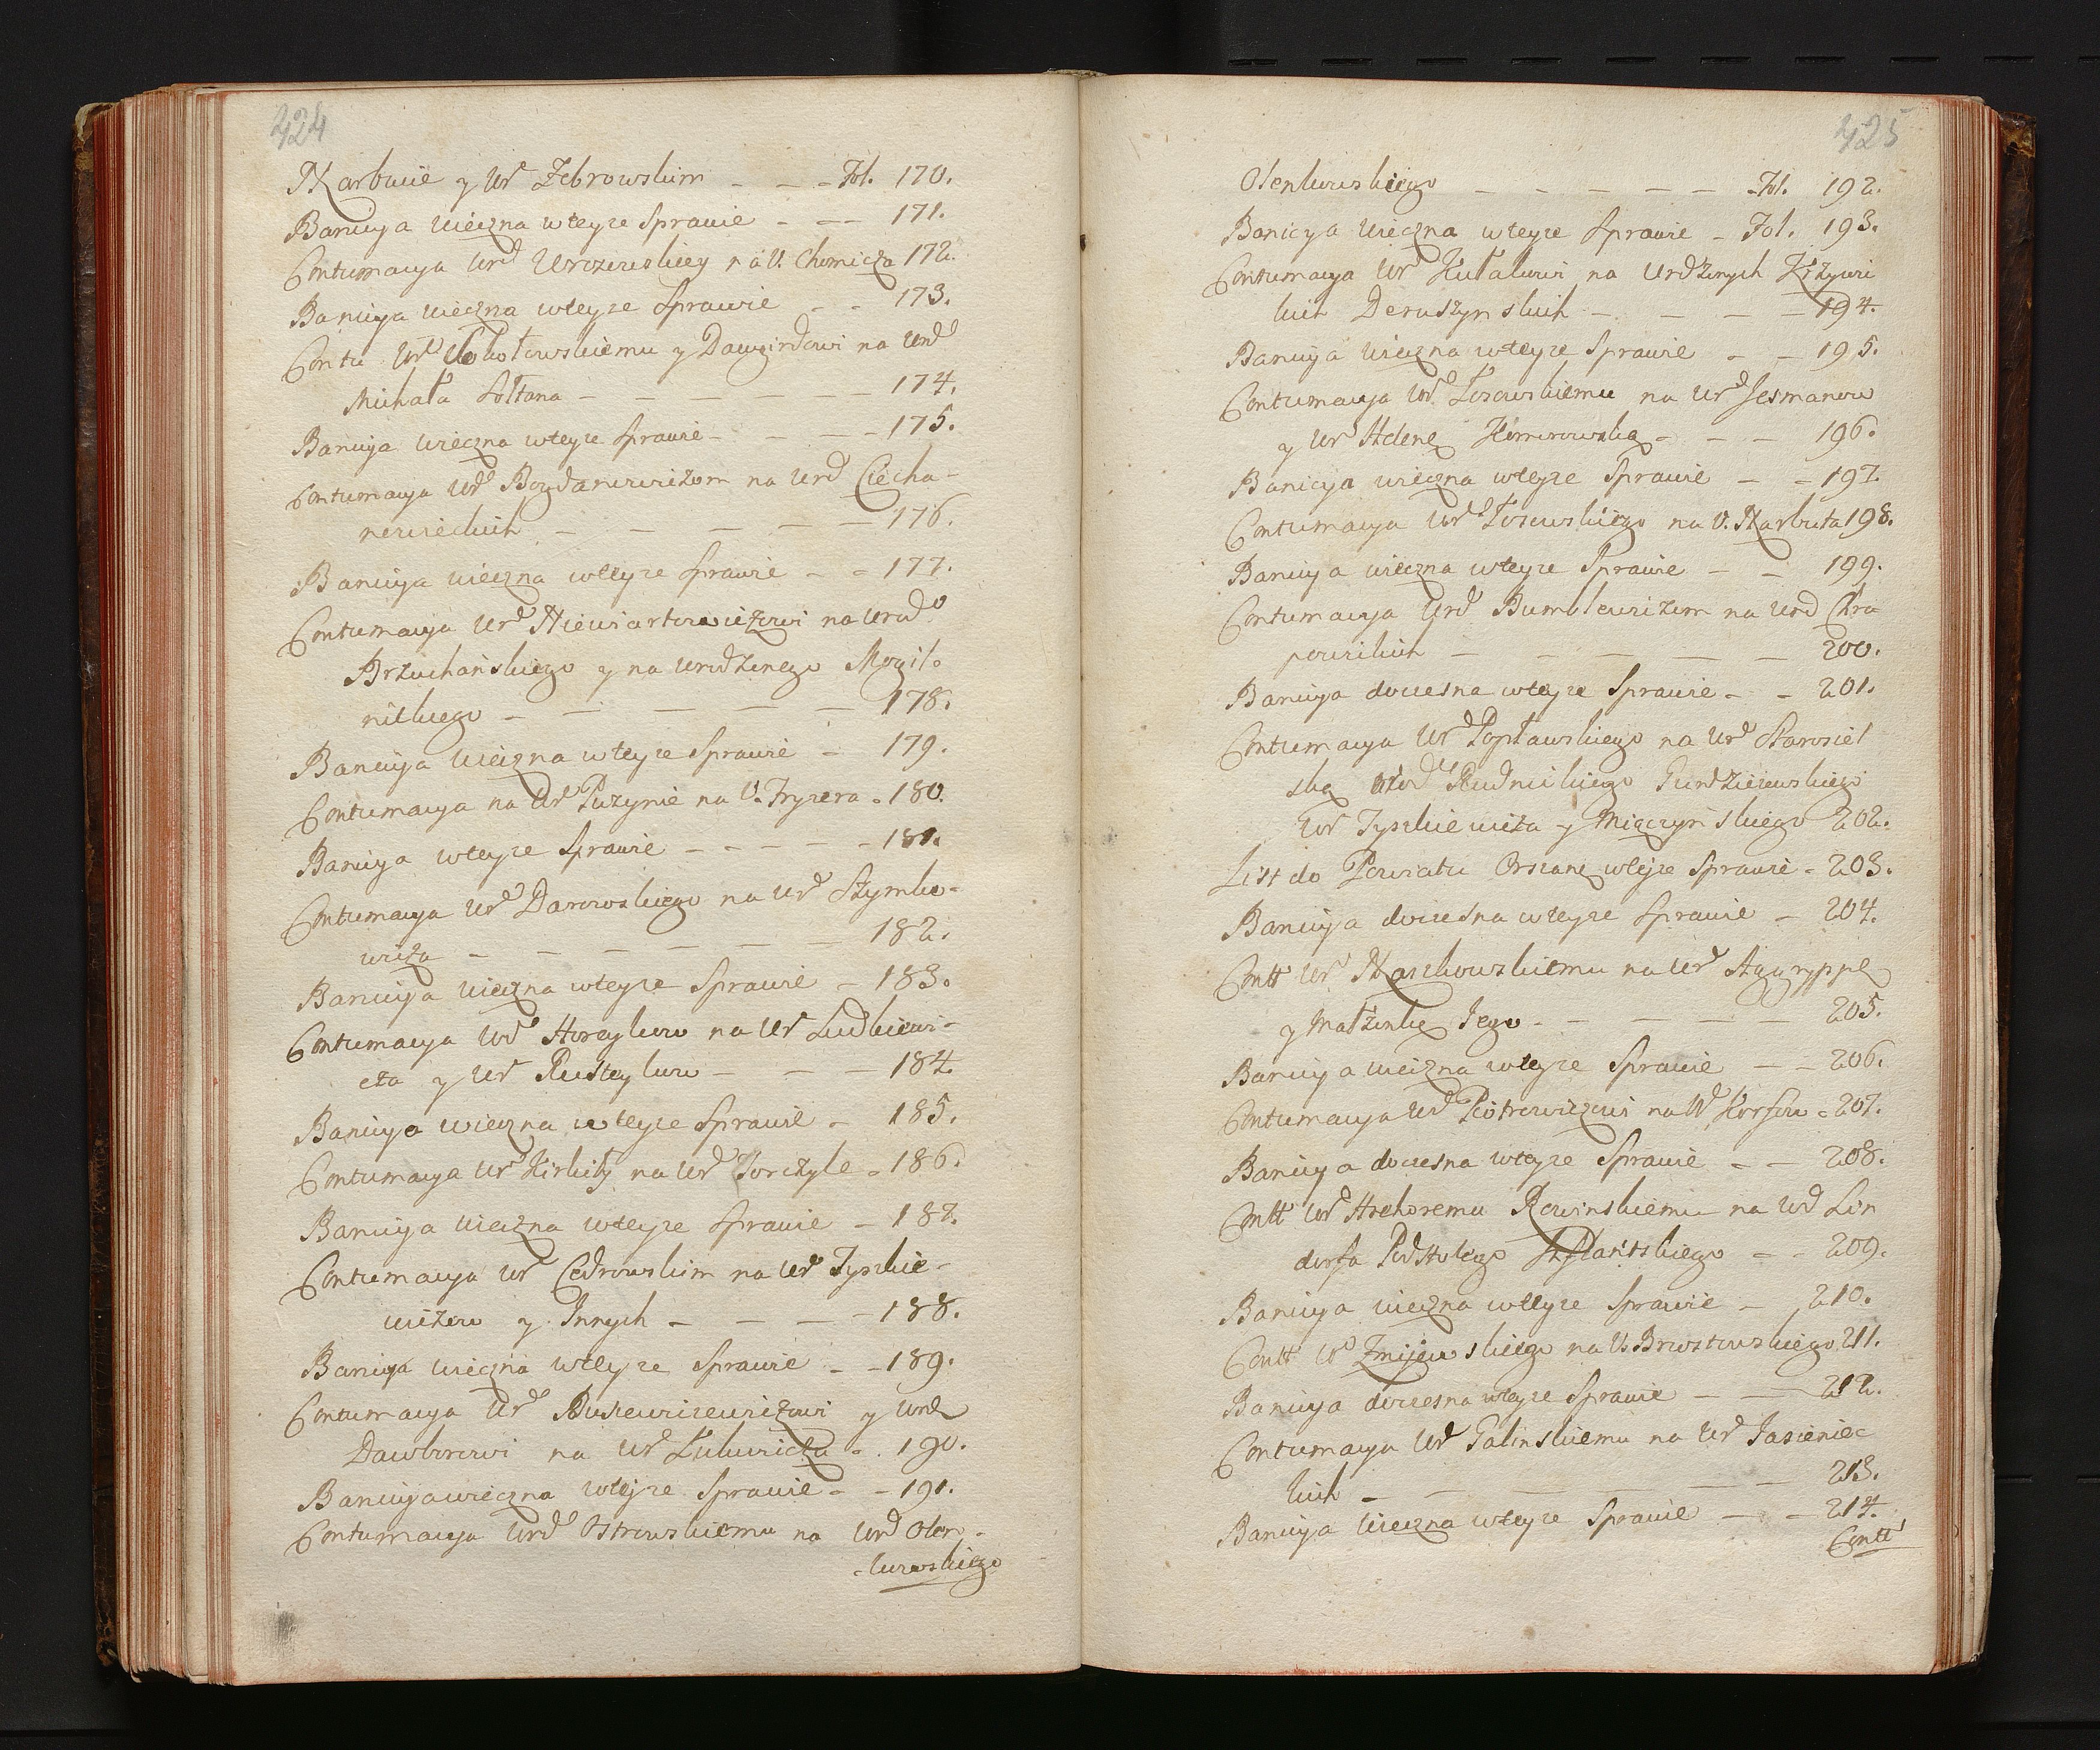 424
Narbucie y Ur Zebrowskim - - - Fol. 170.
Banicya wieczna wteyze Sprawie - - - 171.
Contumacya Urd Wrozewskiey na U. Chomicza 172.
Banicya wieczna wteyze Sprawie - - 173.
Contu Urd Sokołowskiemu y Dawgirdowi na Urd
Michała Sołtana - - - - - - 174.
Banicya wieczna wteyze Sprawie - - - - 175.
Contumacya Urd Bogdanowiczom na Urd Ciecha-
nowieckich - - - - - - 176.
Banicya wieczna wteyze Sprawie - - 177.
Contumacya Urd Niewiarowiczowi na Urod
Brzuchańskiego y na Urodzonego Mogil-
nickiego - - - - - 178.
Banicya wieczna wteyze Sprawie - 179.
Contumacya na Ur Puzynie na U. Fryzera - 180.
Banicya wteyze Sprawie - - - - - 181.
Contumacya Urd Darowskiego na Ur Szymko-
wicza - - - - - - 182.
Banicya wieczna wteyze Sprawie - 183.
Contumacya Urd Horeykow na Ur Ludkiewi-
cza y Ur Rusteykow - - - 184.
Banicya wieczna wteyze Sprawie - 185.
Contumacya Ur Kirkiły na Urd Torczyle - 186.
Banicya wieczna wteyze Sprawie - 187.
Contumacya Ur Cedrowskim na Urd Tyszkie-
wiczow y Innych - - - - 188.
Banicya wieczna wteyze Sprawie - - 189.
Contumacya Ur y Urd
Dawborowi na Ur Łukowicza - 190.
Banicya wieczna wteyze Sprawie - - 191.
Contumacya Urd Ostrowskiemu na Urd Olen-
-kowskiego
425
Olenkowskiego - - - - - - Fol. 192.
Banicya wieczna wteyze Sprawie - Fol. 193.
Contumacya Ur Kułakowi na Urdzonych Krzywi
kich Deruszynskich - - - - 194.
Banicya wieczna wteyze Sprawie - - 195.
Contumacya Urd Łosowskiemu na Ur Jesmanow
y Ur Helenę Komorowską - - - 196.
Banicya wieczna wteyze Sprawie - - 197.
Contumacya Urd Łosowskiego na U. Narbuta 198.
Banicya wieczna wteyze Sprawie - - 199.
Contumacya Urd Bumblewiczom na Urd Chra
powickich - - - - - 200.
Banicya doczesna wteyze Sprawie - - 201.
Contumacya Ur Popławskiego na Urd Starosiel
ską Urod Rudnickiego Gurdziejewskiego
Ur Tyszkiewicza y Miączynskiego 202.
List do Powiatu Orszanę wteyze Sprawie - 203.
Banicya doczesna wteyze Sprawie - 204.
Contt Ur Naszkowskiemu na Ur Aggryppę
y Małżonkę Jego - - - - - 205.
Banicya wieczna wteyze Sprawie - - 206.
Contumacya Ur Piotrowiczowi na Ur Korsow - 207.
Banicya doczesna wteyze Sprawie - - 208.
Contt Ur Hrehoremu Rowinskiemu na Urd Lin
dorfa Podstolego Inflantskiego - - 209.
Banicya wieczna wteyze Sprawie - 210.
Contt Ur Zmijewskiego na U. Brzostowskiego 211.
Banicya doczesna wteyze Sprawie - - 212.
Contumacya Ur Galinskiemu na Ur Jasieniec
kich - - - - - 213.
Banicya wieczna wteyze Sprawie - - 214.
Contt